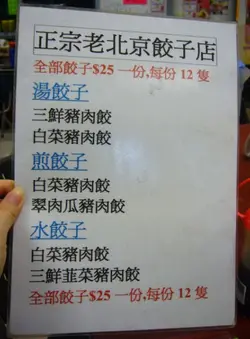 正宗老北京餃子店
全部餃子$25 一份,每份 12 隻
湯餃子
三鮮豬肉餃
白菜豬肉餃
煎餃子
白菜豬肉餃
翠肉瓜豬肉餃
水餃子
白菜豬肉餃
三鮮韮菜豬肉餃
全部餃子$25 一份,每份 12 隻